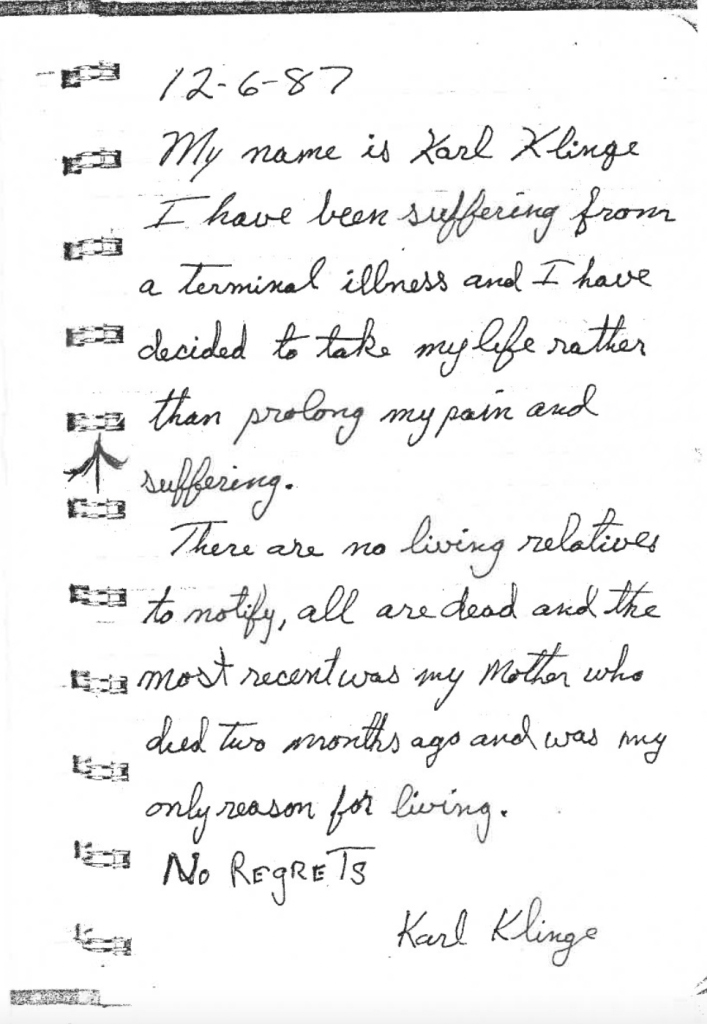 12-6-87
My name is Karl Klinge
I have been suffering from
a terminal illness and I have
decided to take my life rather
than prolong my pain and
suffering.
There are no living relatives
to notify, all are dead and the
most recent was my Mother who
died two months ago and was my
only reason for living.
No REGRETS
Karl Klinge